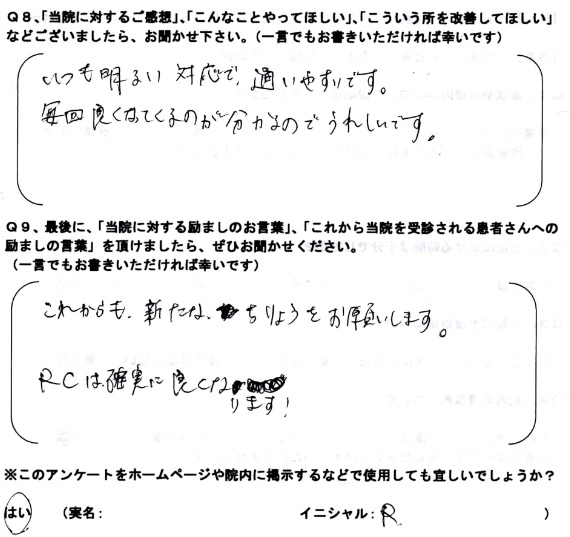 Q8、「当院に対するご感想」、「こんなことやってほしい」、「こういう所を改善してほしい」
などございましたら、お聞かせ下さい。(一言でもお書きいただければ幸いです)
いつも明るい対応で、通いやすいです。
毎回良くなてくるのが分かるのでうれしいです。
Q9、最後に、「当院に対する励ましのお言葉」、「これから当院を受診される患者さんへの
励ましの言葉」を頂けましたら、ぜひお聞かせください。
(一言でもお書きいただければ幸いです)
これからも、新たな、ちりょうをお願いします。
RCは確実に良くな
ります!
※このアンケートをホームページや院内に掲示するなどで使用しても宜しいでしょうか?
はい (実名: イニシャル:R )